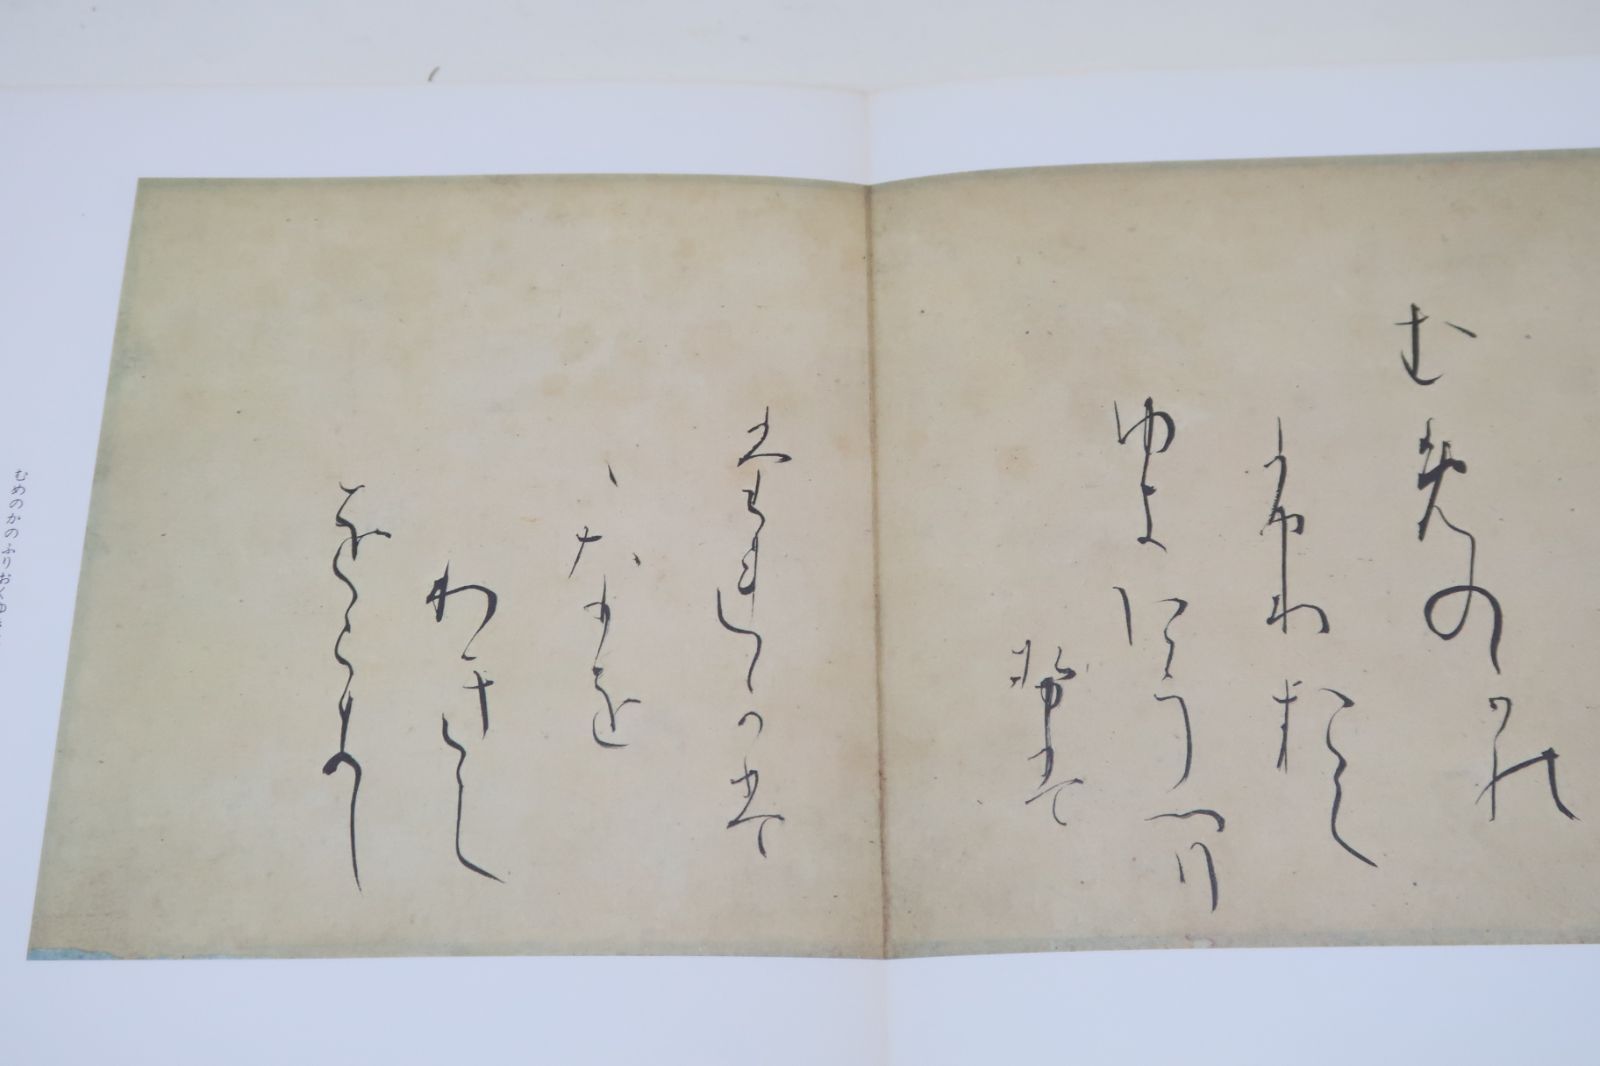 むめのかの
ふりおく
ゆきにうつり
せは
たれかは
ゝなを
わきて
をらまし
むめのかのふりおくゆ